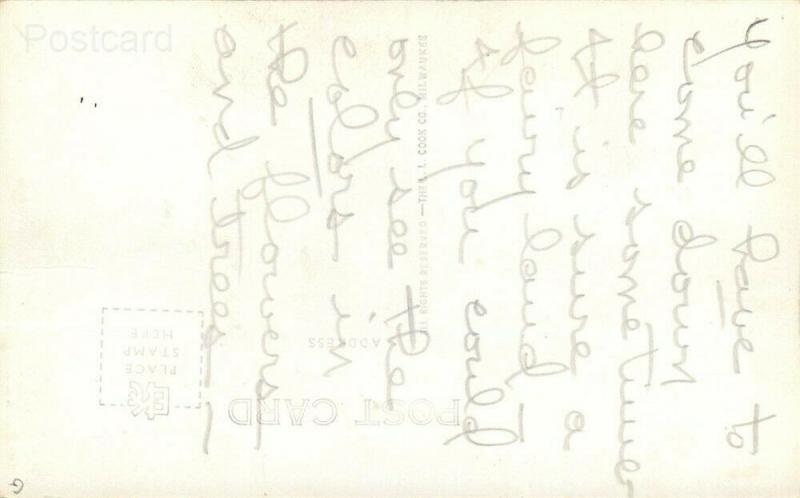 Postcard
You'll have to
come down
here sometime
It is sure a
fairy land,
If you could
only see the
colors in
the flowers
and trees!
POST CARD
ADDRESS
PLACE
STAMP
HERE
ALL RIGHTS RESERVED—THE L. L. COOK CO., MILWAUKEE
G